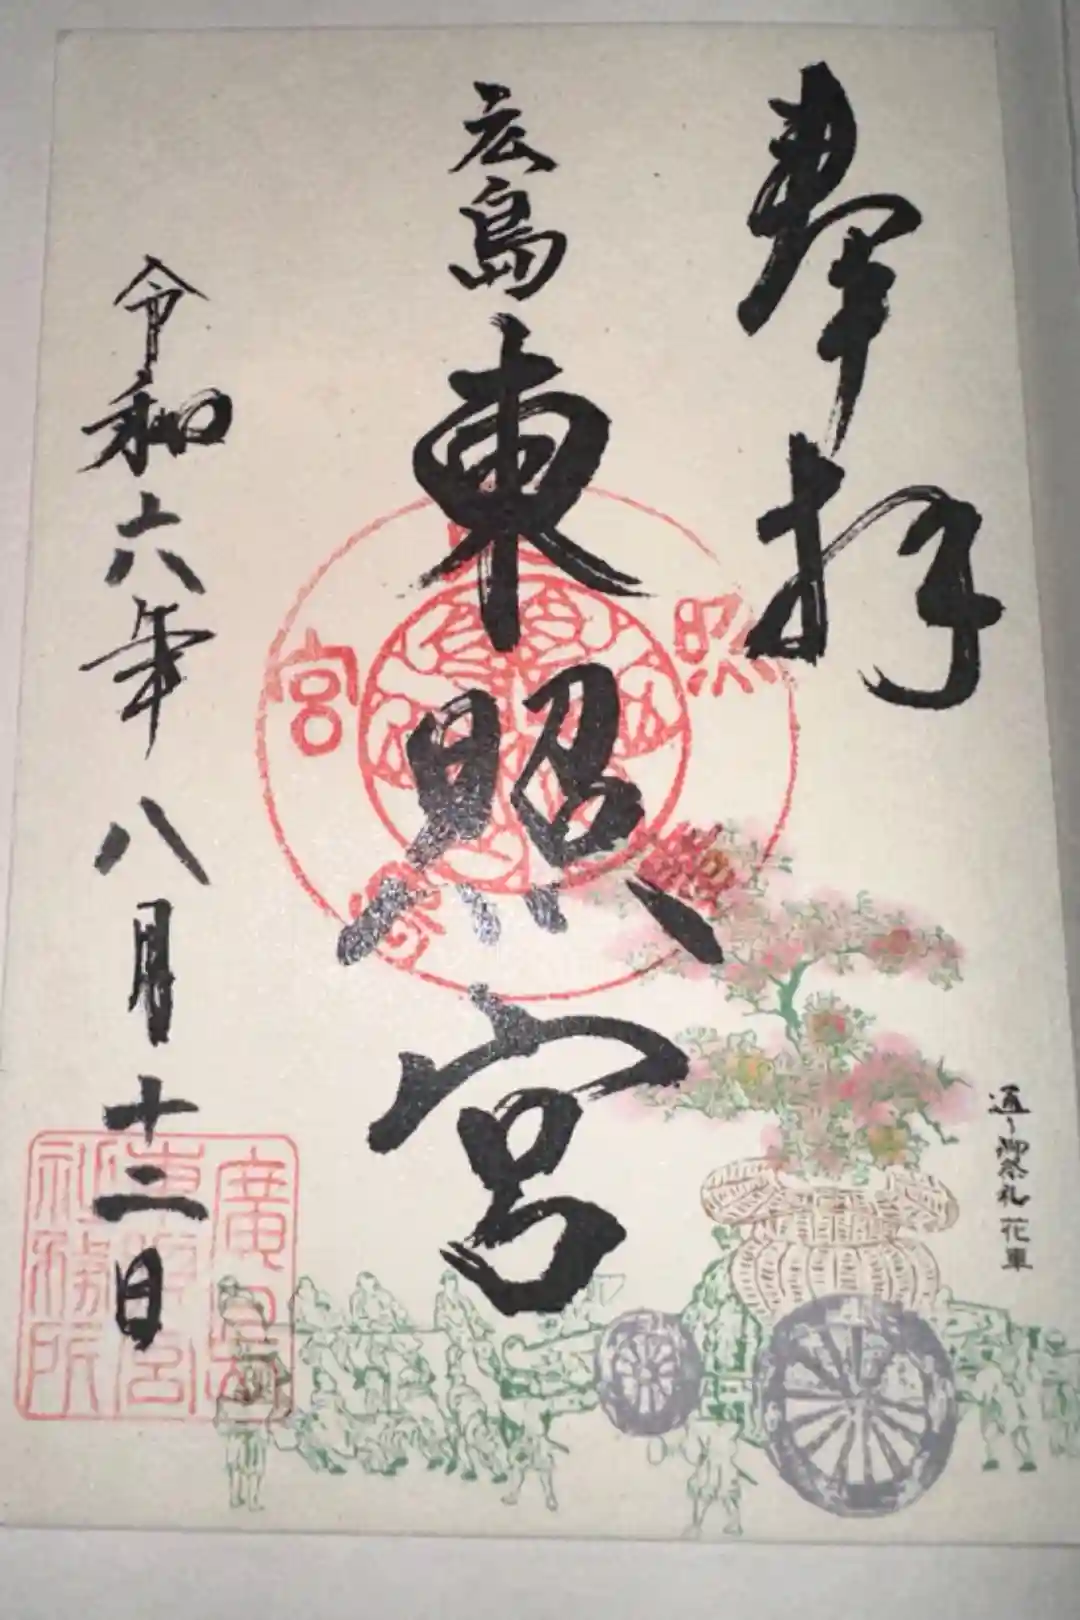 奉拝
広島東照宮
令和六年八月十二日
通り御祭礼花車
照
宮
廣島
東照宮
社務所